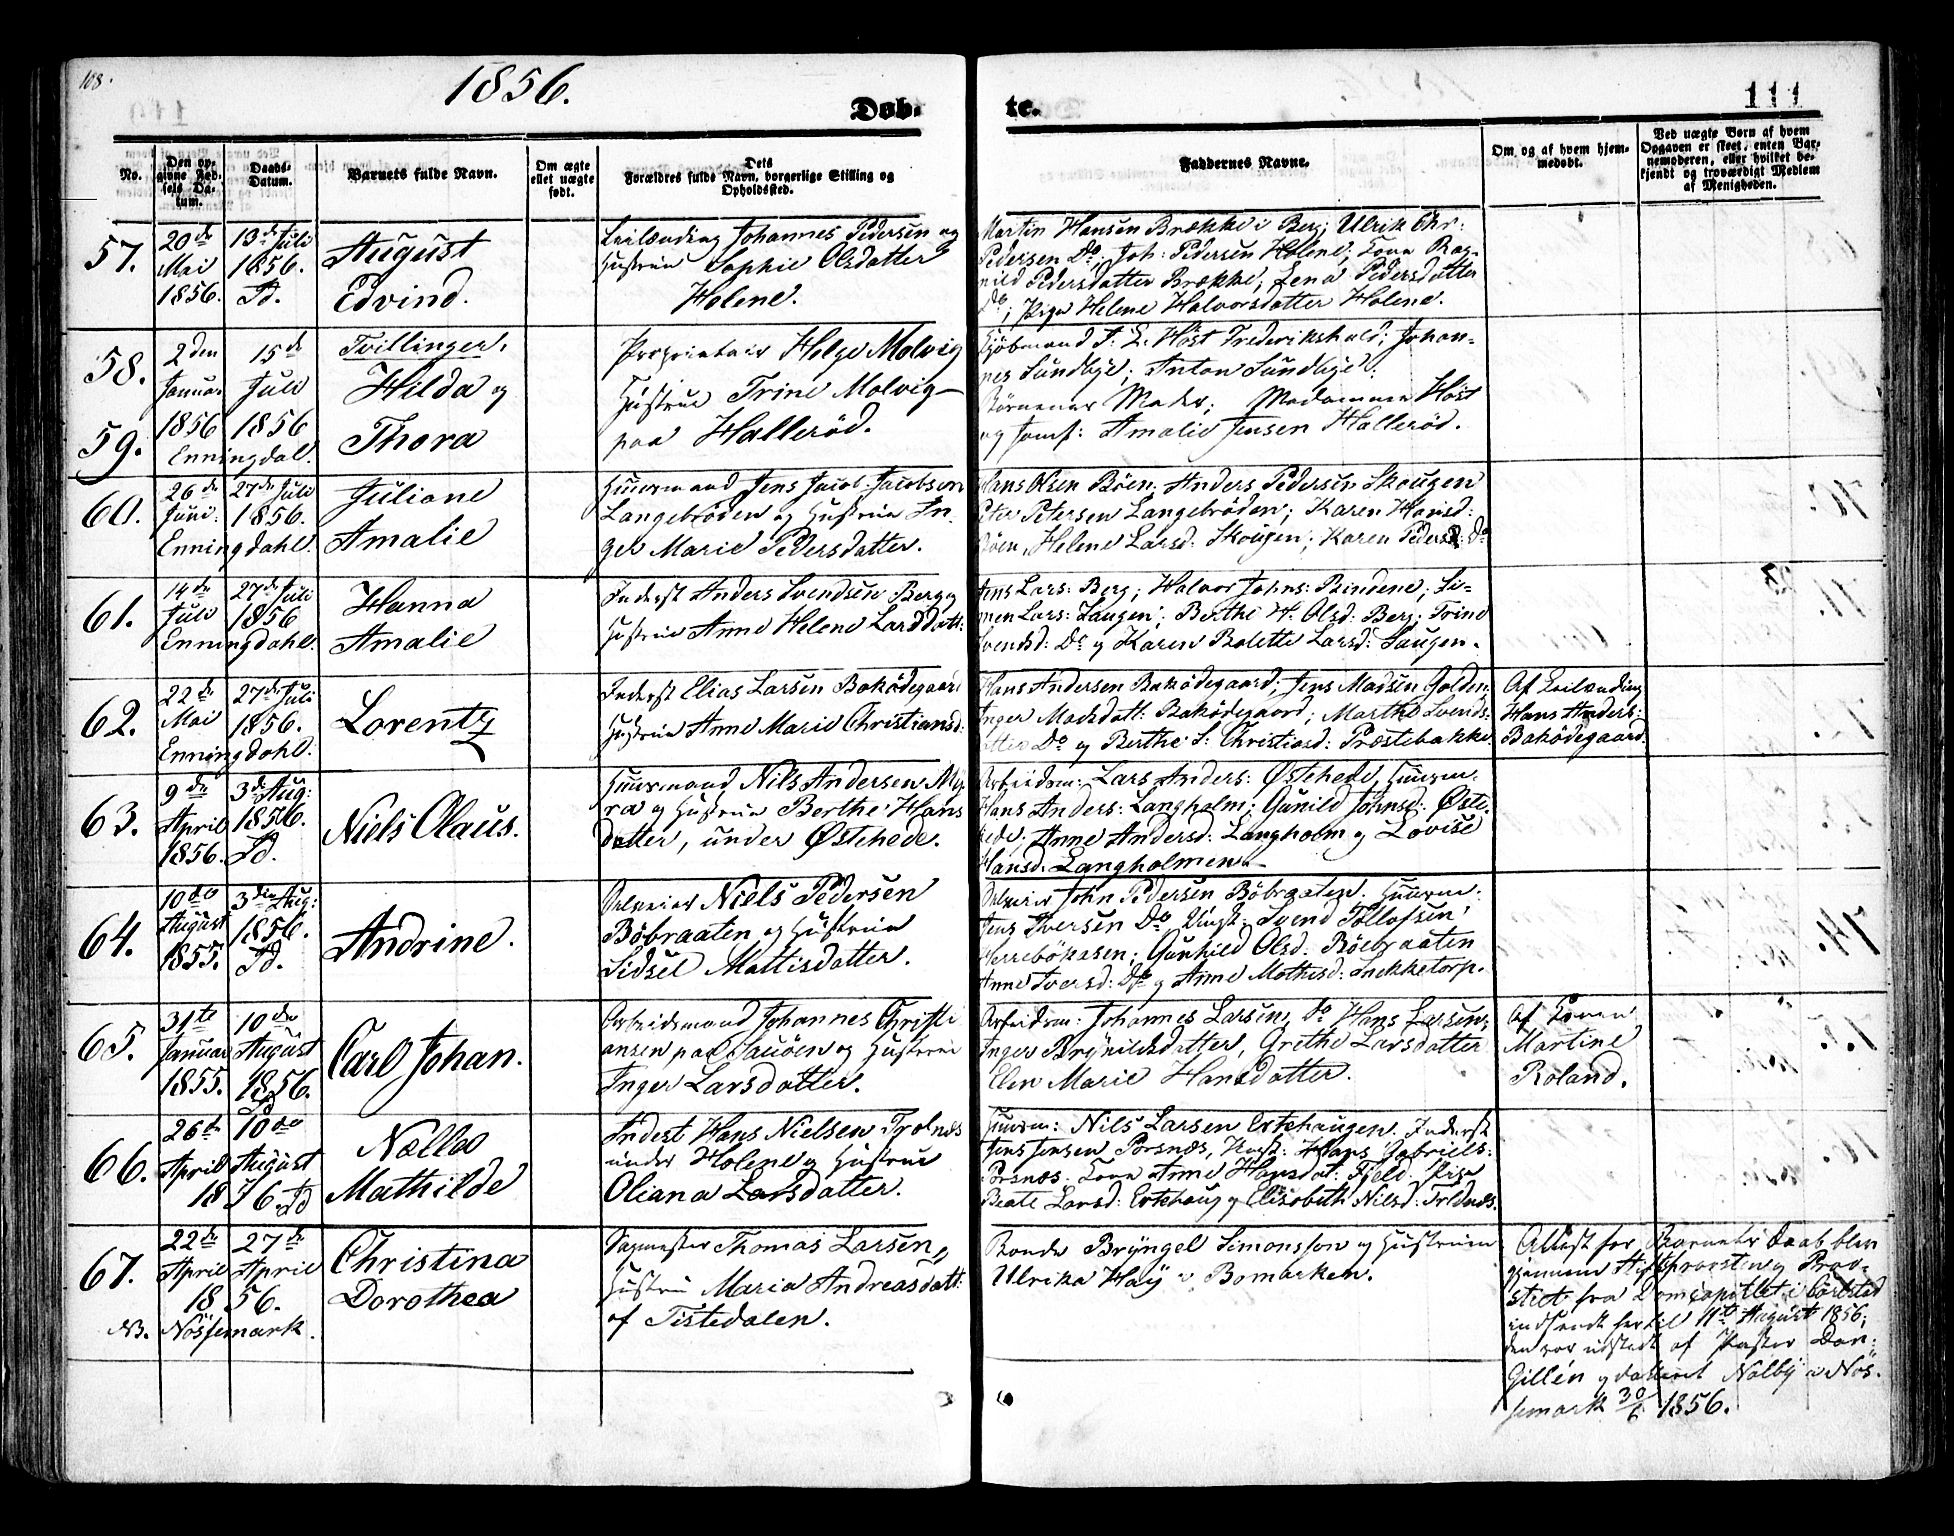 108.
1856.
Døb-
te.
111
No.
Den op-
givne Fød-
sels Da-
tum.
Daabs-
Datum.
Barnets fulde Navn.
Om ægte
ellet uægte
født.
Dets
Forældres fulde Navn, borgerlige Stilling og
Opholdssted.
Faddernes Navne.
Om og af hvem hjem-
medøbt.
Ved uægte Børn af hvem
Opgaven er skeet, enten Bar-
nemoderen, eller hvilket be-
kjendt og troværdigt Medlem
af Menigheden.
57.
20de
Mai
1856.
13de Juli
1856.
Id.
August
Edvind.
Leilænding Johannes Pedersen og
Hustrue Sophie Olsdatter
Holene.
Martin Hansen Brække i Berg; Ulrik Chr:
Pedersen Do; Joh: Pedersen Holene; Kone Rag-
nild Pedersdatter Brække; Lena Pedersdatter
Do; Pige Helene Halvorsdatter Holene.
58.
59.
2den
Januar
1856
15de
Juli
1856
Enningdal.
Tvillinger.
Hilda og
Thora
Proprietair Helge Molvig
Hustrue Trine Molvig
paa Hallerød.
Kjøbmand F. L. Høst Frederikshald; Johan-
nes Sundbye; Anton Sundbye.
Børnenes Moder; Madamme Høst
og Jomf: Amalie Jensen Hallerød.
60.
26de
Juni.
27de Juli
1856.
Enningdahl.
Juliane
Amalie
Huusmand Jens Jacob Jacobsen
Langebrøden og Hustrue In-
ger Marie Pedersdatter.
Hans Olsen Bøen; Anders Pedersen Skougen
Peter Petersen Langebrøden; Karen Hansd:
Bøen, Helene Larsd: Skougen; Karen Pedersd: Do
61.
14de
Juli
27de Juli
1856
Enningdahl.
Hanna
Amalie
Inderst Anders Svendsen Berg og
Hustrue Anne Helene Larsdatt:
Jens Lars: Berg; Halvor Johns: Bindene; Si-
men Lars: Saugen; Berthe H. Olsd: Berg; Trine
Svendsd: Do og Karen Bolette Larsd: Saugen.
62.
22de
Mai
27de Juli
1856.
Enningdahl.
Lorentz
Inderst Elias Larsen Bakødegaard
Hustrue Anne Marie Christiansd:
Hans Andersen Bakødegaard; Jens Madsen Golden;
Inger Madsdatt: Bakødegaard; Marthe Svends-
datter Do og Berthe S: Christiasd: Præstebakke.
Af Leilænding
Hans Anders:
Bakødegaard.
63.
9de
April
1856.
3de Aug:
1856.
Id.
Niels Olaus.
Huusmand Nils Andersen My-
ra og Hustrue Berthe Hans
datter, under Østehede.
Arbeidsm: Lars Anders: Østehede, Huusm.
Hans Anders: Langholm; Gunild Johnsd: Øste-
hede; Anne Andersd: Langholm og Lovise
Hansd: Langholmen.
64.
10de
August
1855.
3de Aug:
1856.
Id.
Andrine.
Selveier Niels Pedersen
Bøbraaten og Hustrue
Sidsel Mattisdatter.
Selveier John Pedersen Bøbraaten. Huusm:
Jens Iversen Do Ungk: Svend Tollofsen
Herrebøkasen; Gunhild Olsd: Böebraaten
Anne Iversd: Do og Anne Mathisd: Lukketorp.
65.
31te
Januar
1855.
10de
August
1856.
Carl Johan.
Arbeidsmand Johannes Christi
ansen paa Sauøen og Hustrue
Inger Larsdatter.
Arbeidsm: Johannes Larsen, do Hans Larsen;
Inger Brynildsdatter, Grethe Larsdatter
Elen Marie Hansdatter.
Af Konen
Martine
Roland.
66.
26de
April
10de
August
1856. Id
Nælla
Mathilde
Inderst Hans Nielsen
under Holene og Hustrue
Oliana Larsdatter.
Huusm: Nils Larsen Ertehaugen. Inderst
Jens Jensen Porsnæs, Ungk: Hans Gabriels:
Porsnæs. Kone Anne Hansdat: Fjeld. Pige
Beate Larsd: Ertehaug og Elisabeth Nilsd:
67.
22de
April
27de
April
1856.
NB. Nössemark.
Christina
Dorothea
Sagmester Thomas Larsen,
Hustru Maria Andreasdatt:
af Tistedalen.
Bonde Bryngel Simonsson og Hustruen
Ulrika Hay i Bomarken.
Attest for Barnets Daab blev
gjennem Stiftsprovsten og Prov-
stiet fra Domcapitlet i Carlstad
indsendt hertil 11te August 1856;
den var udstedt af Pastor Dan:
Gillén og dateret Nolby i Nös-
semark 30/6 1856.